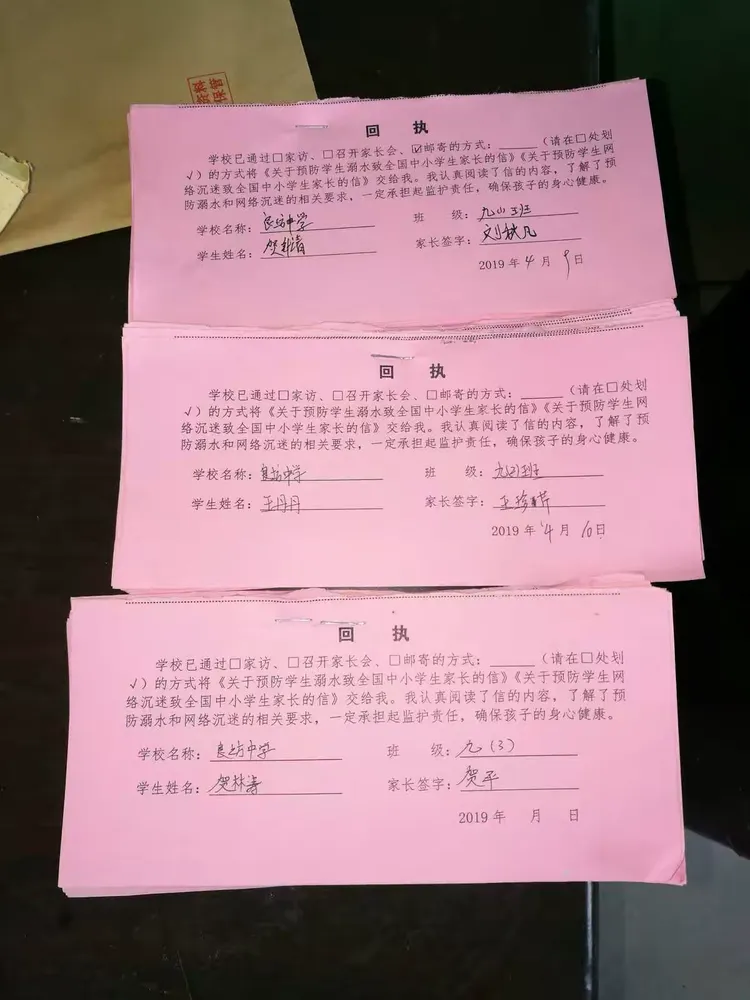 回 执
学校已通过□家访、□召开家长会、☑邮寄的方式：______（请在□处划
√）的方式将《关于预防学生溺水致全国中小学生家长的信》《关于预防学生网
络沉迷致全国中小学生家长的信》交给我。我认真阅读了信的内容，了解了预
防溺水和网络沉迷的相关要求，一定承担起监护责任，确保孩子的身心健康。
学校名称：良坊中学 班 级：九(1)班
学生姓名： 家长签字：
2019 年 4 月 9 日
回 执
学校已通过□家访、□召开家长会、□邮寄的方式：______（请在□处划
√）的方式将《关于预防学生溺水致全国中小学生家长的信》《关于预防学生网
络沉迷致全国中小学生家长的信》交给我。我认真阅读了信的内容，了解了预
防溺水和网络沉迷的相关要求，一定承担起监护责任，确保孩子的身心健康。
学校名称：良坊中学 班 级：九(2)班
学生姓名：王丹丹 家长签字：
2019 年 4 月 10 日
回 执
学校已通过□家访、□召开家长会、□邮寄的方式：______（请在□处划
√）的方式将《关于预防学生溺水致全国中小学生家长的信》《关于预防学生网
络沉迷致全国中小学生家长的信》交给我。我认真阅读了信的内容，了解了预
防溺水和网络沉迷的相关要求，一定承担起监护责任，确保孩子的身心健康。
学校名称：良坊中学 班 级：九(3)
学生姓名：贺林涛 家长签字：贺平
2019 年 月 日